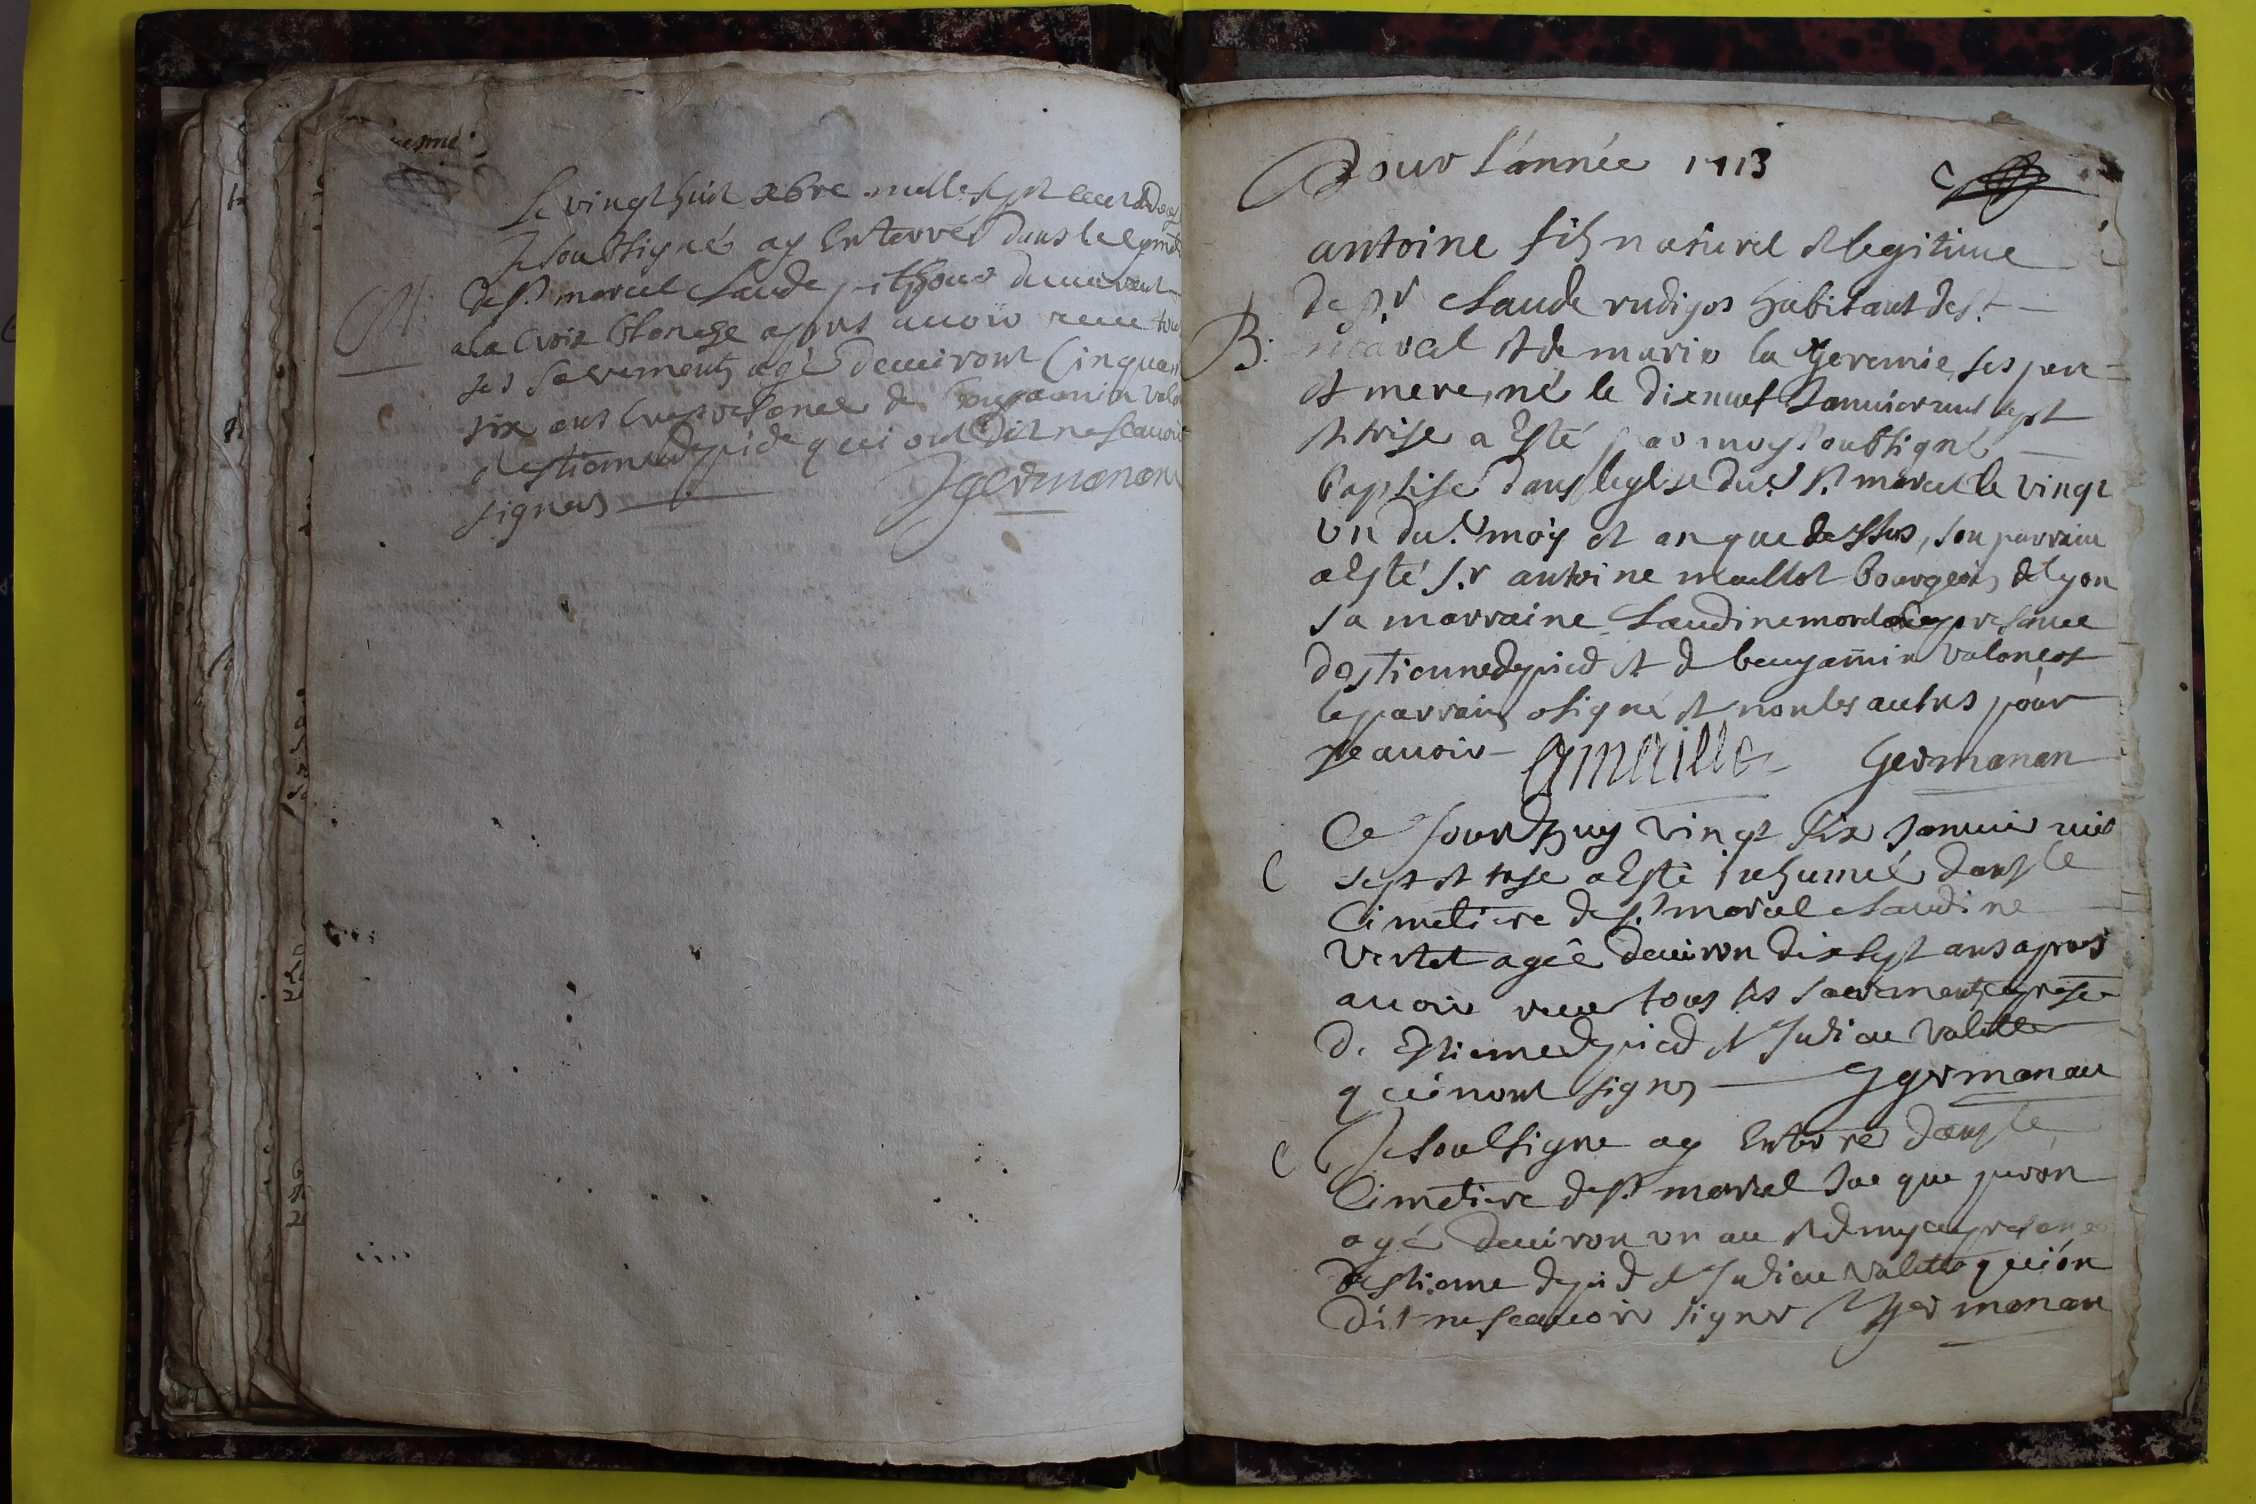 Le vingt huit xbre mille sept cent douze
Je soubsigné ay Enterré dans le
de St. marcel Claude pithous demeurant
a la Croix blanche apres avoir receu tous
ses sacrements agé denviront Cinquan
six ans En presence de benjamin
destienne depied qui ont dit ne scavoir
signer Jgermanon
Pour L'année 1713
antoine fils naturel et legitime
de Sr. Claude rudigos habitant de St.
marcel et de marie la Jeremie, ses pere
B:
et mere, né le dixneuf Janvier mil sept
et treise a Esté par moy soubsigné
baptisé dans leglise dud. St. marcel le vingt
vn du d. moys et an que dessus, son parrain
a Esté S.r antoine maillot bourgeois de Lyon
sa marraine Claudine en presence
destienne depied et de benjamin
le parrain a signé et non les autres pour
ne avoir Amaillot Germanon
Ce Jourdhuy vingt six Janvier mil
C sept et trese a Esté inhumée dans le
Cimetiere de St. marcel Claudine
agée denviron dix sept ans apres
avoir receu tous les sacrements en presence
de Estienne depied et Julien Valette
qui nont signer Jgermanon
C Je soubsigne ay Enterré dans le
Cimetiere de St. marcel Jaque peron
agé denviron vn an et demy en presence
destienne depied et Julien Valette qui on
dit ne scavoir signer Jgermanon